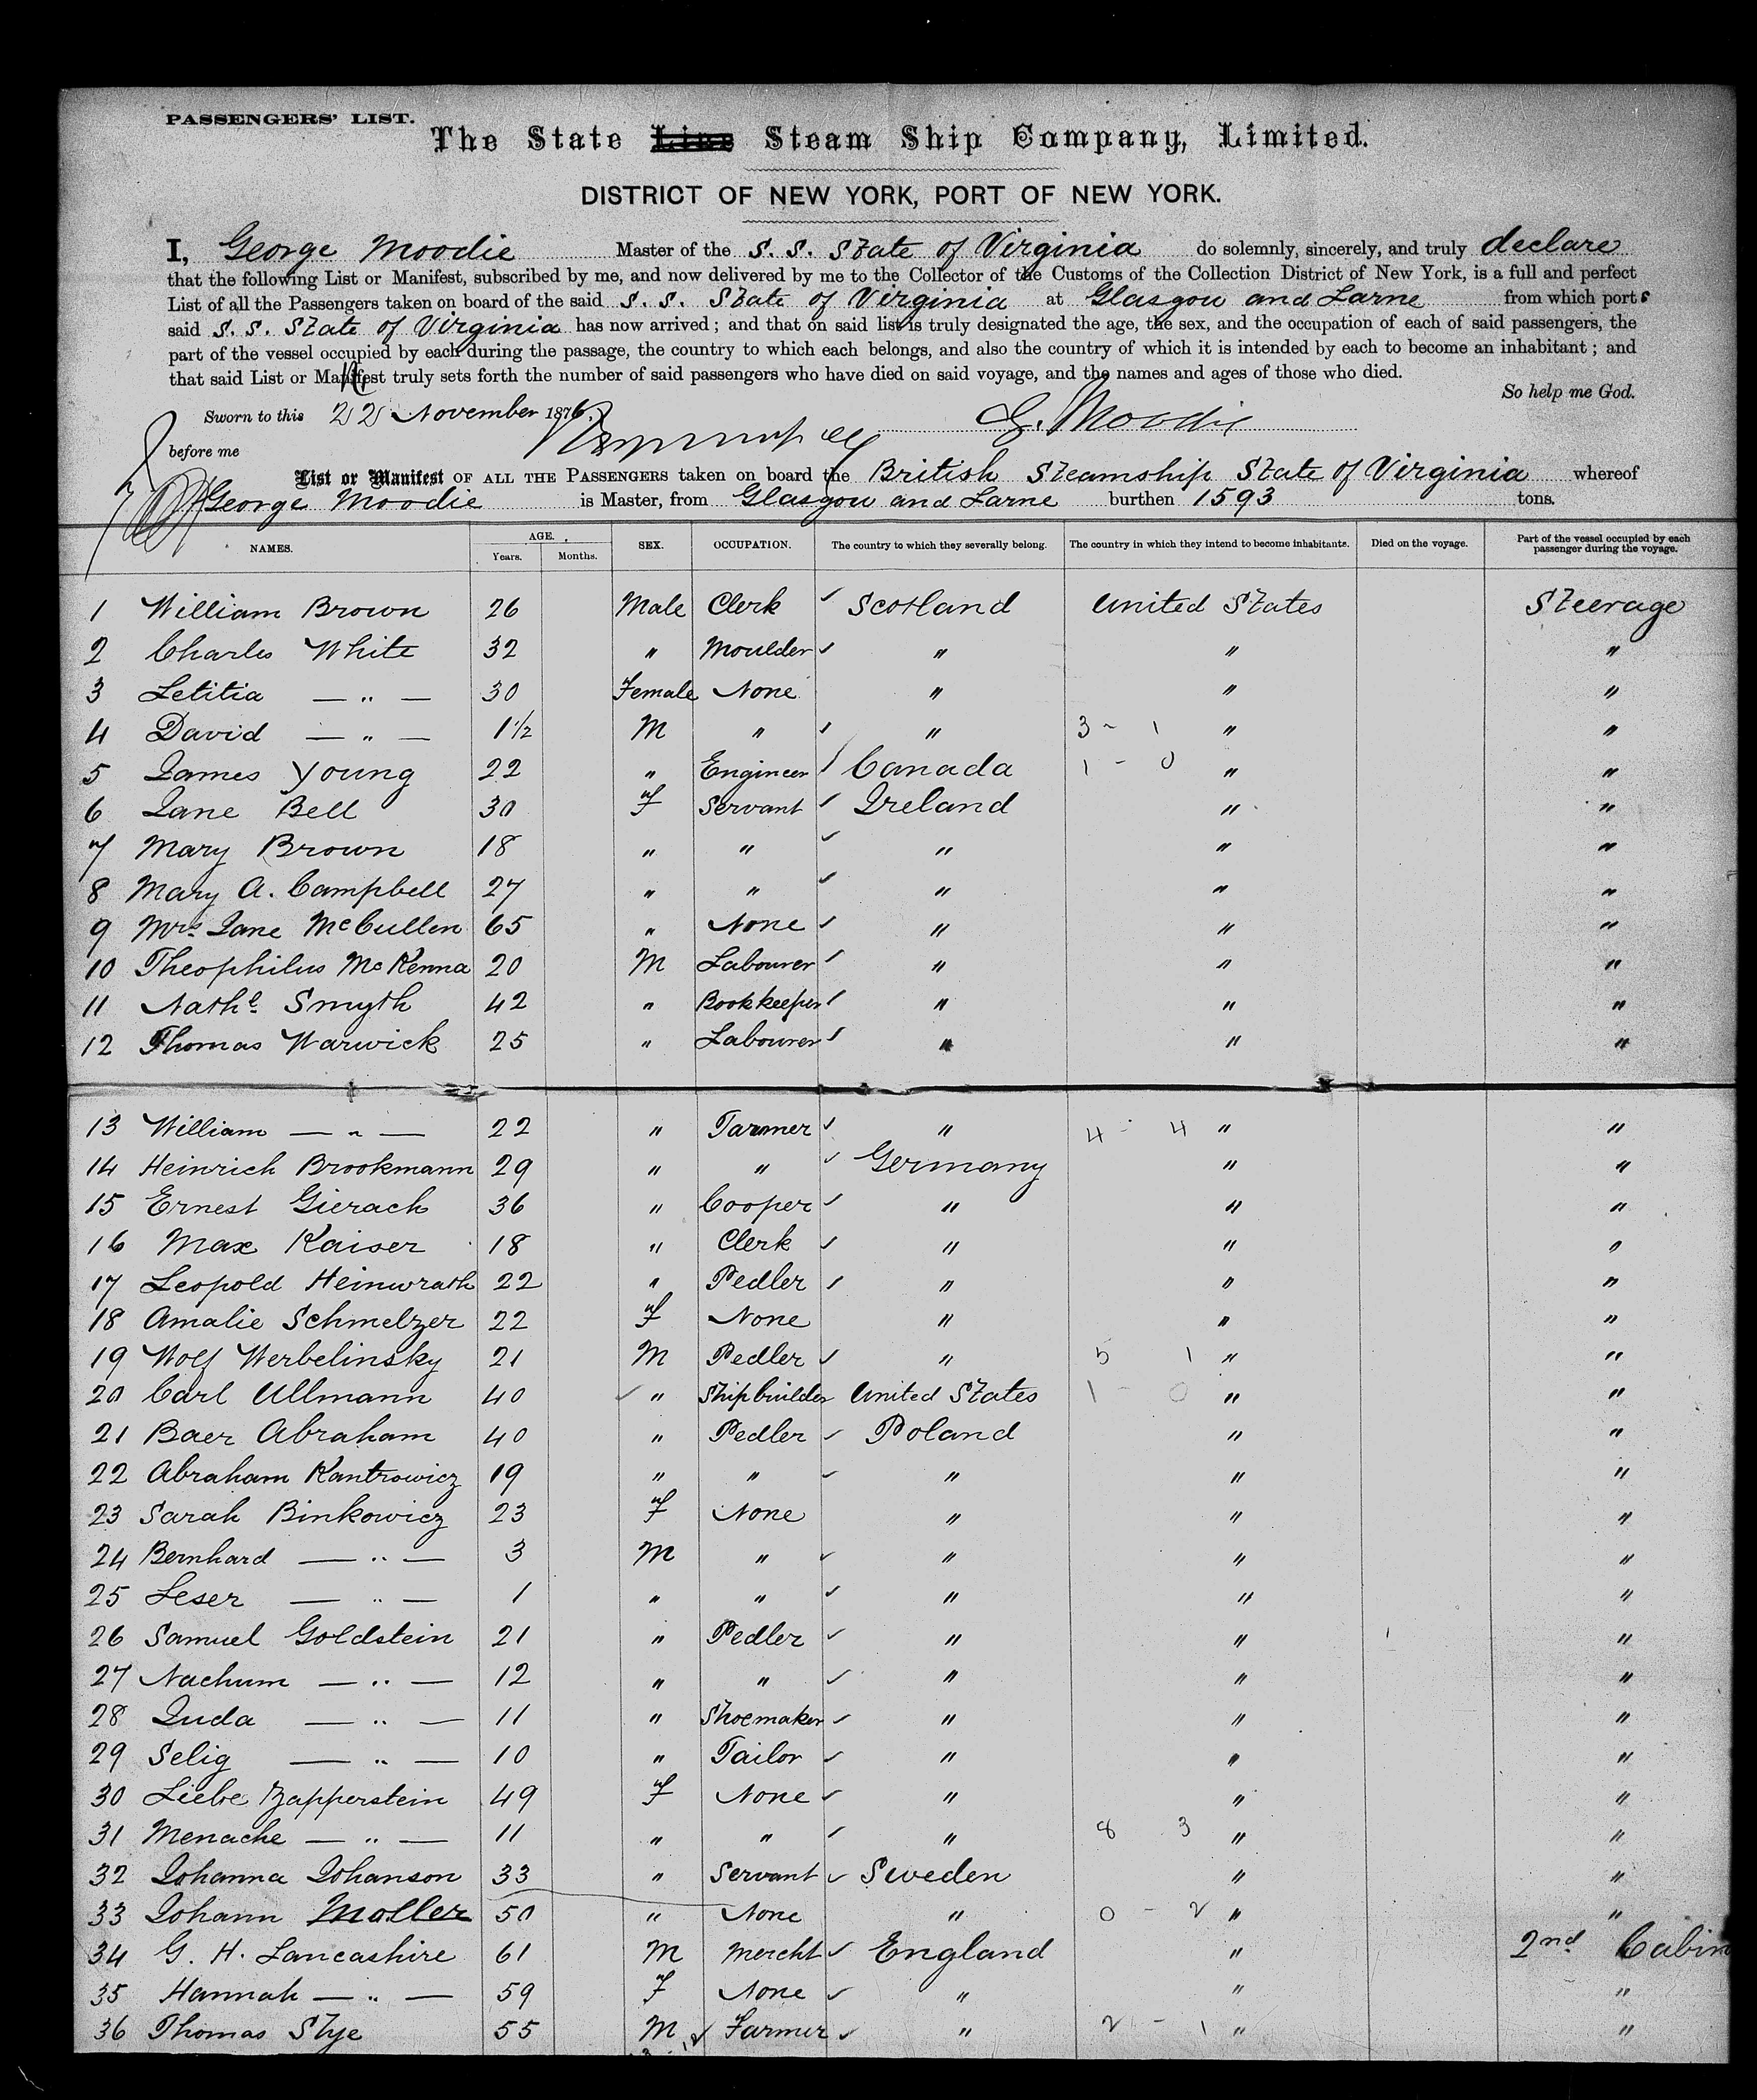 PASSENGERS' LIST.
The State Line Steam Ship Company, Limited.
DISTRICT OF NEW YORK, PORT OF NEW YORK.
I, George Moodie Master of the S. S. State of Virginia do solemnly, sincerely, and truly declare
that the following List or Manifest, subscribed by me, and now delivered by me to the Collector of the Customs of the Collection District of New York, is a full and perfect
List of all the Passengers taken on board of the said S. S. State of Virginia at Glasgow and Larne from which ports
said S. S. State of Virginia has now arrived; and that on said list is truly designated the age, the sex, and the occupation of each of said passengers, the
part of the vessel occupied by each during the passage, the country to which each belongs, and also the country of which it is intended by each to become an inhabitant; and
that said List or Manifest truly sets forth the number of said passengers who have died on said voyage, and the names and ages of those who died.
So help me God.
Sworn to this 22 November 1876. G. Moodie
before me
List or Manifest OF ALL THE PASSENGERS taken on board the British Steamship State of Virginia whereof
George Moodie is Master, from Glasgow and Larne burthen 1593 tons.
NAMES. AGE. Years. Months. SEX. OCCUPATION. The country to which they severally belong. The country in which they intend to become inhabitants. Died on the voyage. Part of the vessel occupied by each passenger during the voyage.
1 William Brown 26 Male Clerk Scotland United States Steerage
2 Charles White 32 " Moulder " " "
3 Letitia — " — 30 Female None " " "
4 David — " — 1 1/2 M " " 3 - 1 " "
5 James Young 22 " Engineer Canada 1 - 0 " "
6 Jane Bell 30 F Servant Ireland " "
7 Mary Brown 18 " " " " "
8 Mary A. Campbell 27 " " " " "
9 Mrs. Jane McCullen 65 " None " " "
10 Theophilus McKenna 20 M Labourer " " "
11 Nathl. Smyth 42 " Bookkeeper " " "
12 Thomas Warwick 25 " Labourer " " "
13 William — " — 22 " Farmer " 4 - 4 " "
14 Heinrich Brookmann 29 " " Germany " "
15 Ernest Gierach 36 " Cooper " " "
16 Max Kaiser 18 " Clerk " " "
17 Leopold Heinwrath 22 " Pedler " " "
18 Amalie Schmelzer 22 F None " " "
19 Wolf Werbelinsky 21 M Pedler " 5 1 " "
20 Carl Ullmann 40 " Shipbuilder United States 1 - 0 " "
21 Baer Abraham 40 " Pedler Poland " "
22 Abraham Kantrowicz 19 " " " " "
23 Sarah Binkowicz 23 F None " " "
24 Bernhard — " — 3 M " " " "
25 Leser — " — 1 " " " " "
26 Samuel Goldstein 21 " Pedler " " "
27 Nachum — " — 12 " " " " "
28 Juda — " — 11 " Shoemaker " " "
29 Selig — " — 10 " Tailor " " "
30 Liebe Zapperstein 49 F None " " "
31 Menache — " — 11 " " " 8 3 " "
32 Johanna Johanson 33 " Servant Sweden " "
33 Johann Moller 50 " None " 0 - 2 " "
34 G. H. Lancashire 61 M Mercht England " 2nd Cabin
35 Hannah — " — 59 F None " " "
36 Thomas Stye 55 M Farmer " 2 - 1 " "